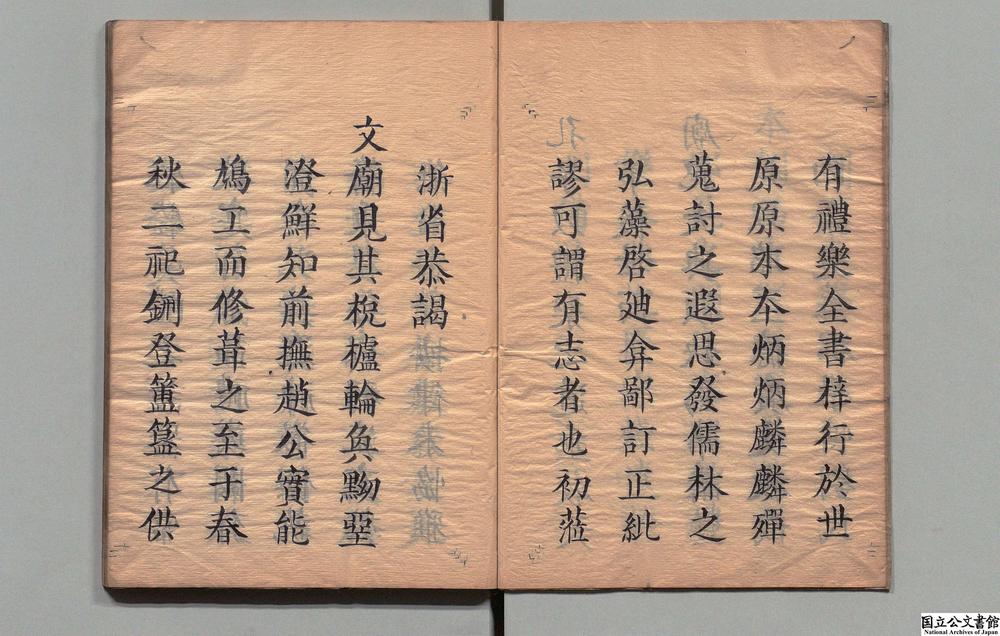 有禮樂全書梓行於世
原原本本炳炳麟麟殫
蒐討之遐思發儒林之
弘藻啓廸弇鄙訂正紕
謬可謂有志者也初蒞
浙省恭謁
文廟見其梲櫨輪奐黝堊
澄鮮知前撫趙公實能
鳩工而修葺之至于春
秋二祀鉶登簠簋之供
国立公文書館
National Archives of Japan